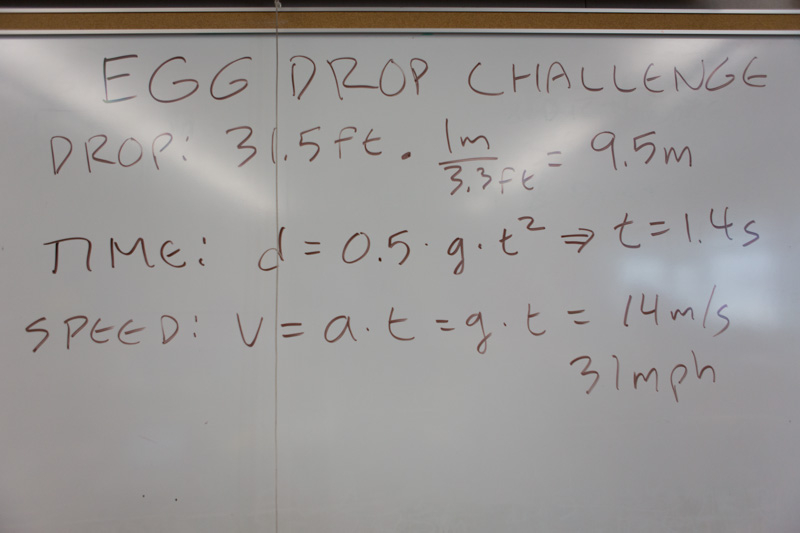 EGG DROP CHALLENGE
DROP: 31.5ft · 1m/3.3ft = 9.5m
TIME: d = 0.5 · g · t² ⇒ t = 1.4s
SPEED: V = a · t = g · t = 14m/s
31mph